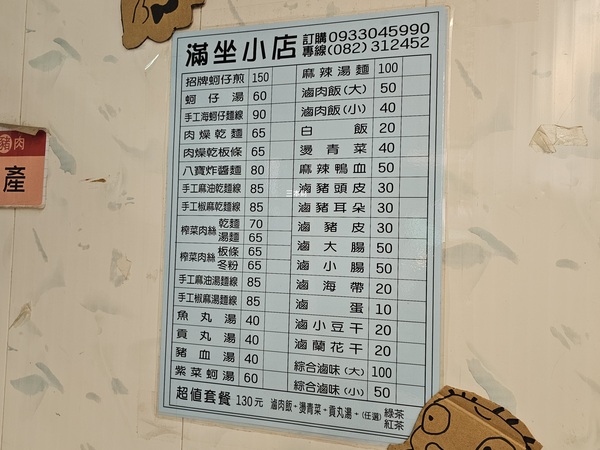 滿坐小店 訂購專線 0933045990 (082)312452
招牌蚵仔煎 150
蚵仔湯 60
手工海蚵仔麵線 90
肉燥乾麵 65
肉燥乾板條 65
八寶炸醬麵 80
手工麻油乾麵線 85
手工椒麻乾麵線 85
榨菜肉絲 乾麵 70
湯麵 65
榨菜肉絲 板條 65
冬粉 65
手工麻油湯麵線 85
手工椒麻湯麵線 85
魚丸湯 40
貢丸湯 40
豬血湯 40
紫菜蚵湯 60
麻辣湯麵 100
滷肉飯(大) 50
滷肉飯(小) 40
白飯 20
燙青菜 40
麻辣鴨血 50
滷豬頭皮 30
滷豬耳朵 30
滷豬皮 30
滷大腸 50
滷小腸 50
滷海帶 20
滷蛋 10
滷小豆干 20
滷蘭花干 20
綜合滷味(大) 100
綜合滷味(小) 50
超值套餐 130元 滷肉飯+燙青菜+貢丸湯+(任選)綠茶
紅茶
豬肉
產